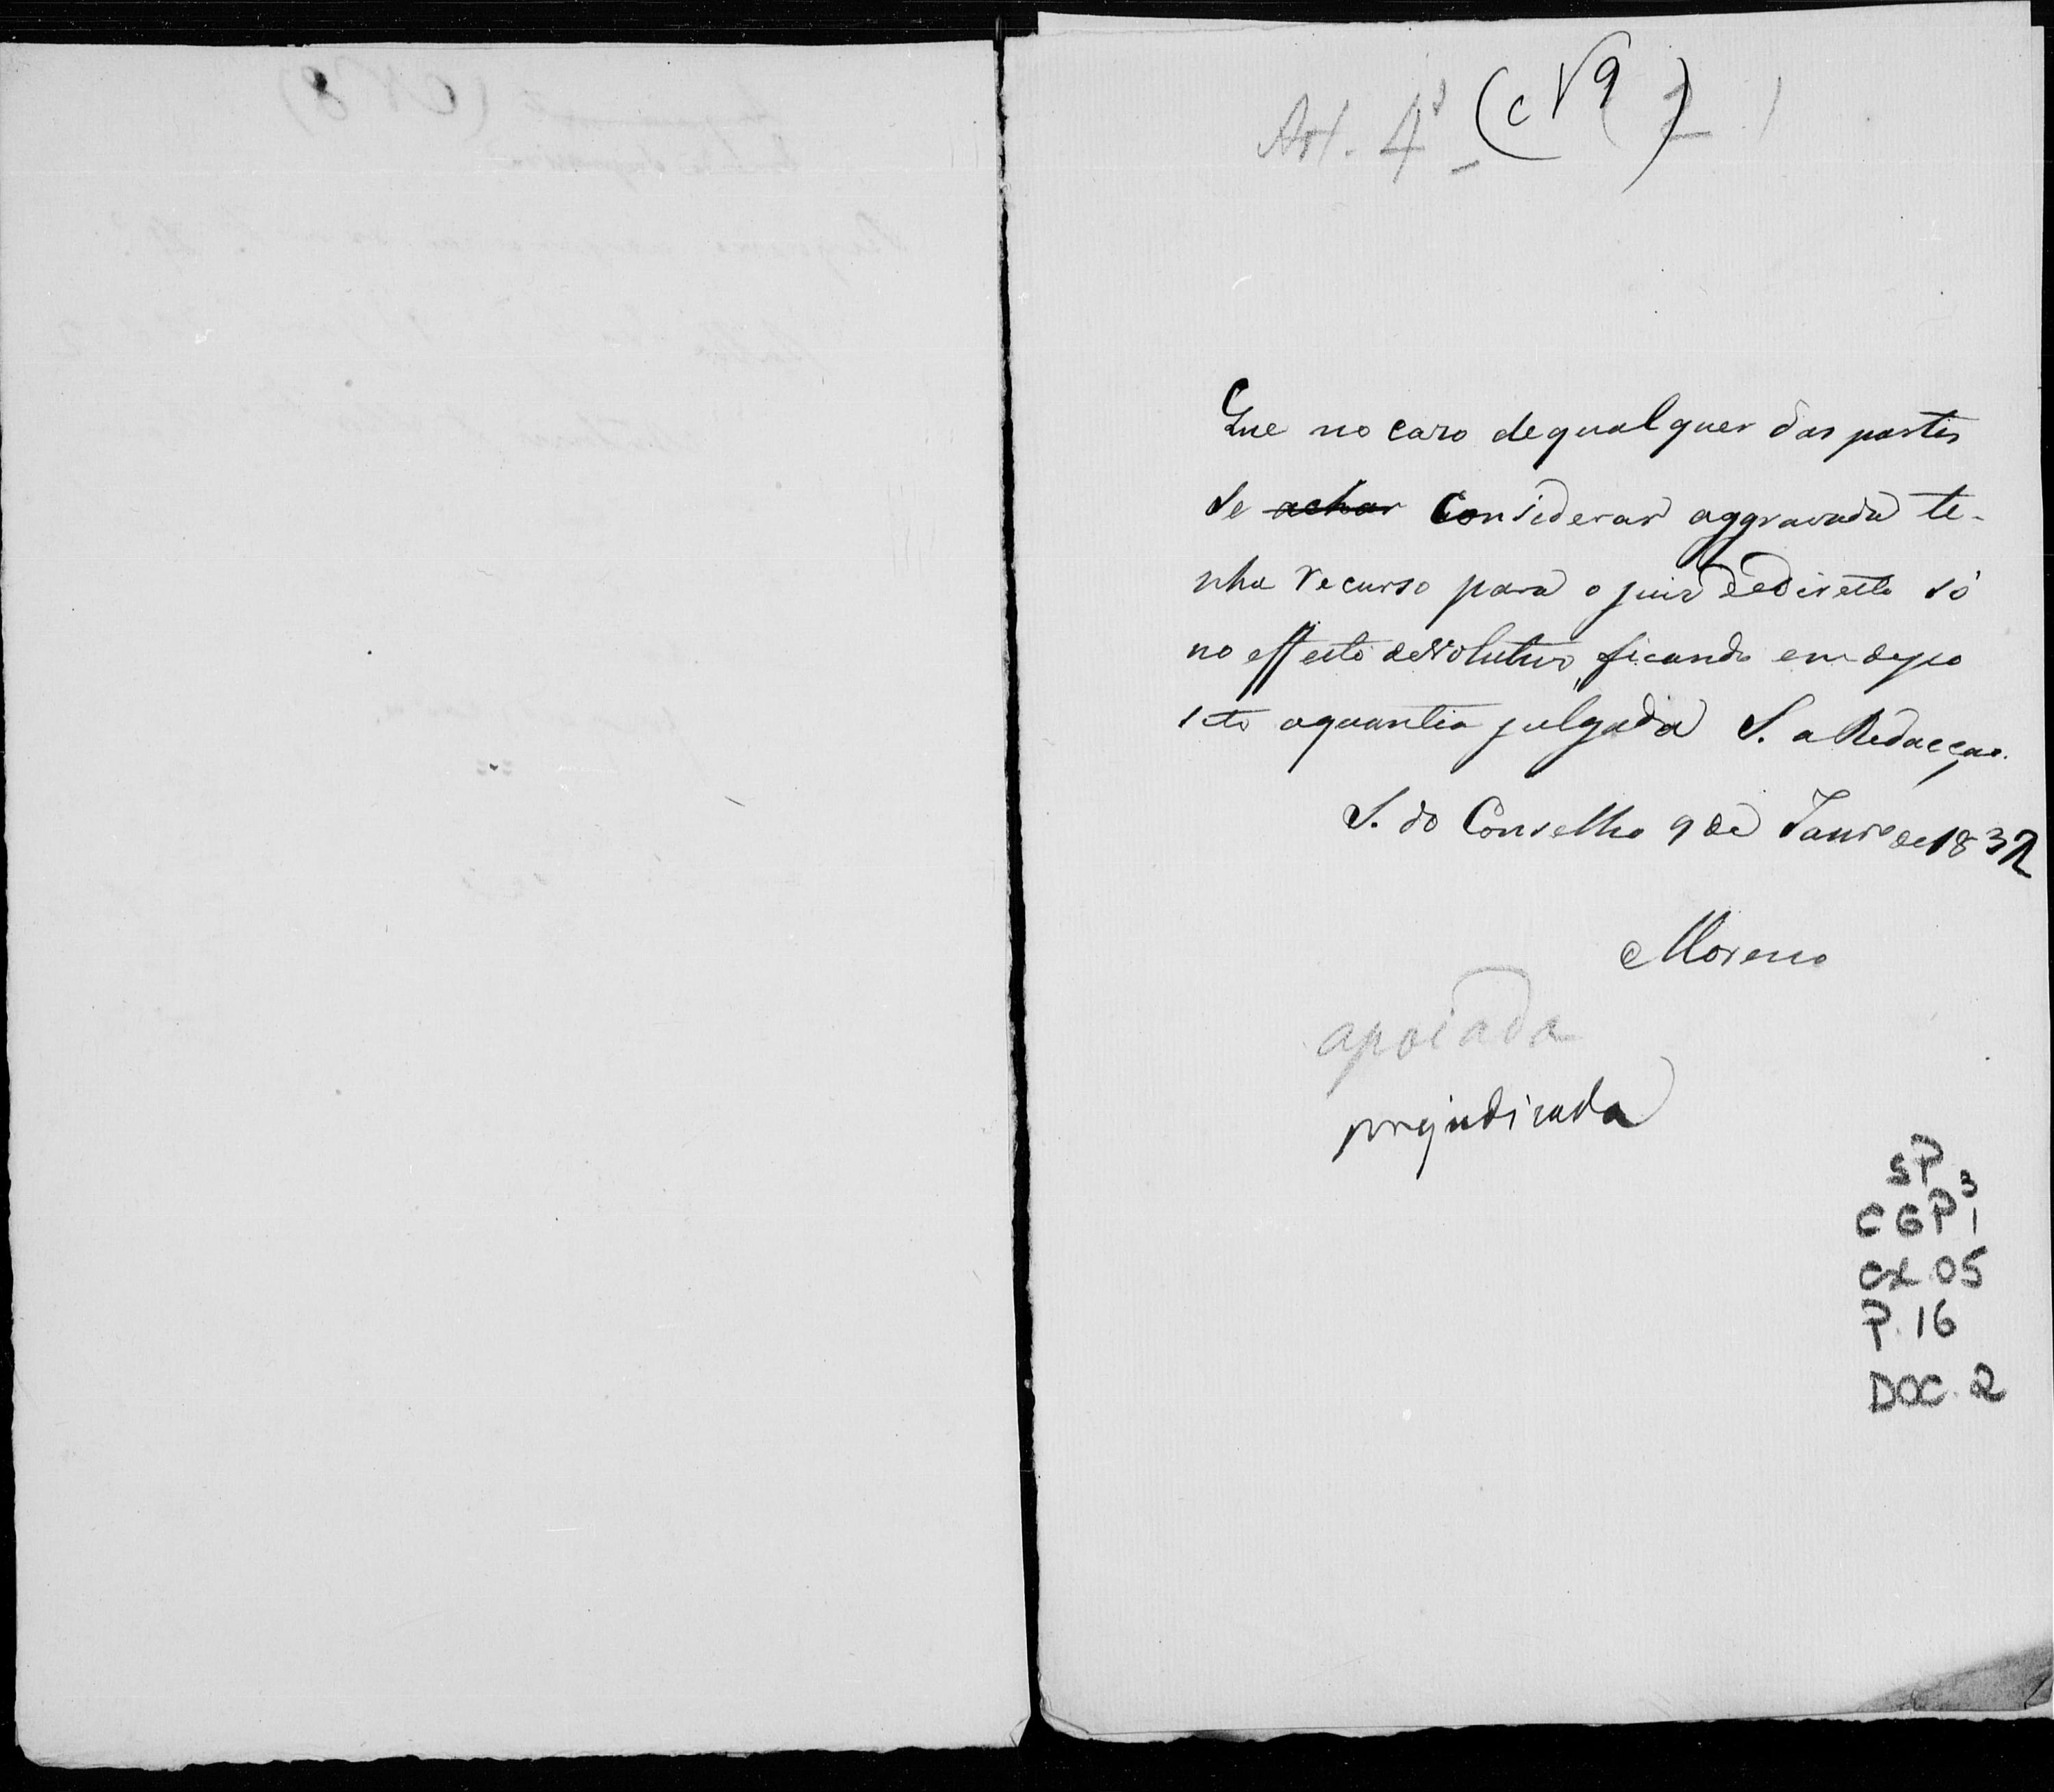 Art. 4º (N 9)
Que no cazo dequalquer das partes
se achar Considerar aggravada te-
nha recurso para o juiz dedireito só
no effeito devolutivo, ficando em depo
sito aquantia julgada S. a Redacção.
S. do Conselho 9 de Janrº de 1832
Moreno
apoiada
prejudicada
SP
CGP 3
1
CX. 05
P. 16
DOC. 2